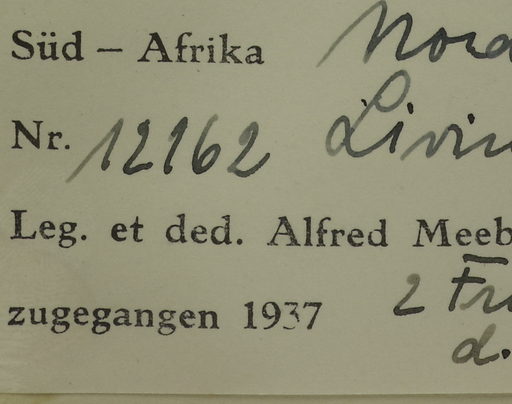 Süd – Afrika Nord
Nr. 12162 Livin
Leg. et ded. Alfred Meeb
zugegangen 1937 2 Fr
d.